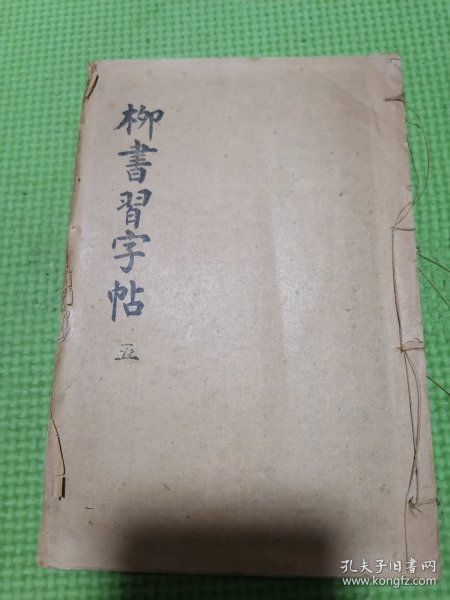 柳書習字帖
五
孔夫子旧书网
www.kongfz.com